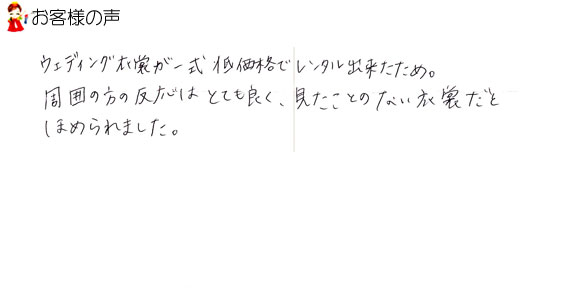 お客様の声
ウェディング衣裳が一式低価格でレンタル出来たため。
周囲の方の反応はとても良く、見たことのない衣裳だと
ほめられました。